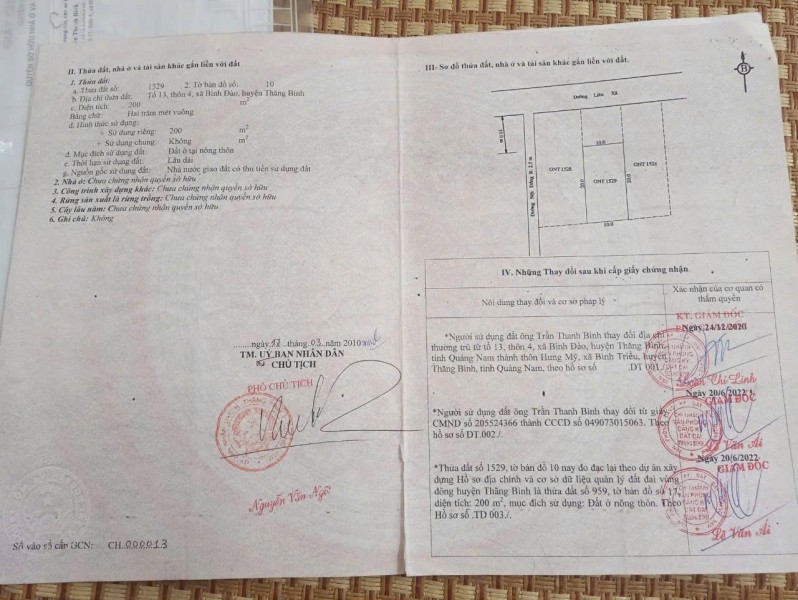 II. Thửa đất, nhà ở và tài sản khác gắn liền với đất
1. Thửa đất:
a. Thửa đất số: 1529 2. Tờ bản đồ số: 10
b. Địa chỉ thửa đất: Tổ 13, thôn 4, xã Bình Đào, huyện Thăng Bình
c. Diện tích: 200 m²
Bằng chữ: Hai trăm mét vuông
d. Hình thức sử dụng:
+ Sử dụng riêng: 200 m²
+ Sử dụng chung: Không m²
d. Mục đích sử dụng đất: Đất ở tại nông thôn
e. Thời hạn sử dụng đất: Lâu dài
g. Nguồn gốc sử dụng đất: Nhà nước giao đất có thu tiền sử dụng đất
2. Nhà ở: Chưa chứng nhận quyền sở hữu
3. Công trình xây dựng khác: Chưa chứng nhận quyền sở hữu
4. Rừng sản xuất là rừng trồng: Chưa chứng nhận quyền sở hữu
5. Cây lâu năm: Chưa chứng nhận quyền sở hữu
6. Ghi chú: Không
ngày 12 tháng 03 năm 2010
TM. UỶ BAN NHÂN DÂN
CHỦ TỊCH
PHÓ CHỦ TỊCH
Nguyễn Văn Ngữ
Số vào sổ cấp GCN: CH 000013
III- Sơ đồ thửa đất, nhà ở và tài sản khác gắn liền với đất.
B
Đường Liên Xã
ONT 1528
ONT 1529
ONT 1524
IV. Những Thay đổi sau khi cấp giấy chứng nhận
Nội dung thay đổi và cơ sở pháp lý
Xác nhận của cơ quan có
thẩm quyền
KT. GIÁM ĐỐC
Ngày 24/12/2020
*Người sử dụng đất ông Trần Thanh Bình thay đổi địa chỉ
thường trú từ tổ 13, thôn 4, xã Bình Đào, huyện Thăng Bình,
tỉnh Quảng Nam thành thôn Hưng Mỹ, xã Bình Triều, huyện
Thăng Bình, tỉnh Quảng Nam, theo hồ sơ số .DT 001./.
Đoàn Chí Linh
Ngày 20/6/2022
GIÁM ĐỐC
*Người sử dụng đất ông Trần Thanh Bình thay đổi từ giấy
CMND số 205524366 thành CCCD số 049073015063. Theo
hồ sơ số DT.002./.
Lê Văn Ái
Ngày 20/6/2022
GIÁM ĐỐC
*Thửa đất số 1529, tờ bản đồ 10 nay đo đạc lại theo dự án xây
dựng Hồ sơ địa chính và cơ sở dữ liệu quản lý đất đai vùng
đông huyện Thăng Bình là thửa đất số 959, tờ bản đồ số 17,
diện tích: 200 m², mục đích sử dụng: Đất ở nông thôn. Theo
Hồ sơ số .TD 003./.
Lê Văn Ái